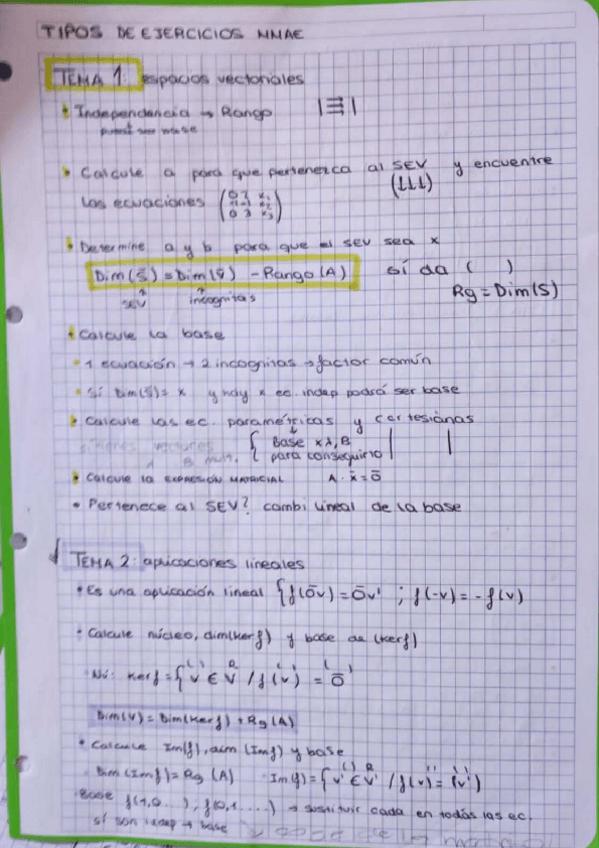 TIPOS DE EJERCICIOS MMAE
TEMA 1: espacios vectoriales
Independencia → Rango |∃|
puede ser base
Calcule a para que pertenezca al SEV y encuentre
las ecuaciones (↓↓↓)
Determine a y b para que el sev sea x
Dim(S̄) = Dim(V̄) - Rango(A) sí da ( )
SEV incognitas Rg = Dim(S)
Calcule la base
1 ecuación → 2 incognitas → factor común
Sí Dim(S̄) = x y hay x ec. indep podrá ser base
Calcule las ec. paramétricas y cartesianas
vectores { Base x λ, B
para conseguirlo
Calcule la EXPRESIÓN MATRICIAL A · x̄ = ō
Pertenece al SEV? combi lineal de la base
TEMA 2: aplicaciones lineales
Es una aplicación lineal { f(ōv) = ōv' ; f(-v) = -f(v)
Calcule núcleo, dim(kerf) y base de (kerf)
Nú: Kerf = { v ∈ V / f(v) = ō'
Dim(V) = Dim(Kerf) + Rg(A)
Calcule Im(f), dim (Imf) y base
Dim (Imf) = Rg (A) Im(f) = { v' ∈ V' / f(v) = v' }
Base f(1,0...), f(0,1....) → sustituir cada en todas las ec.
sí son indep → base